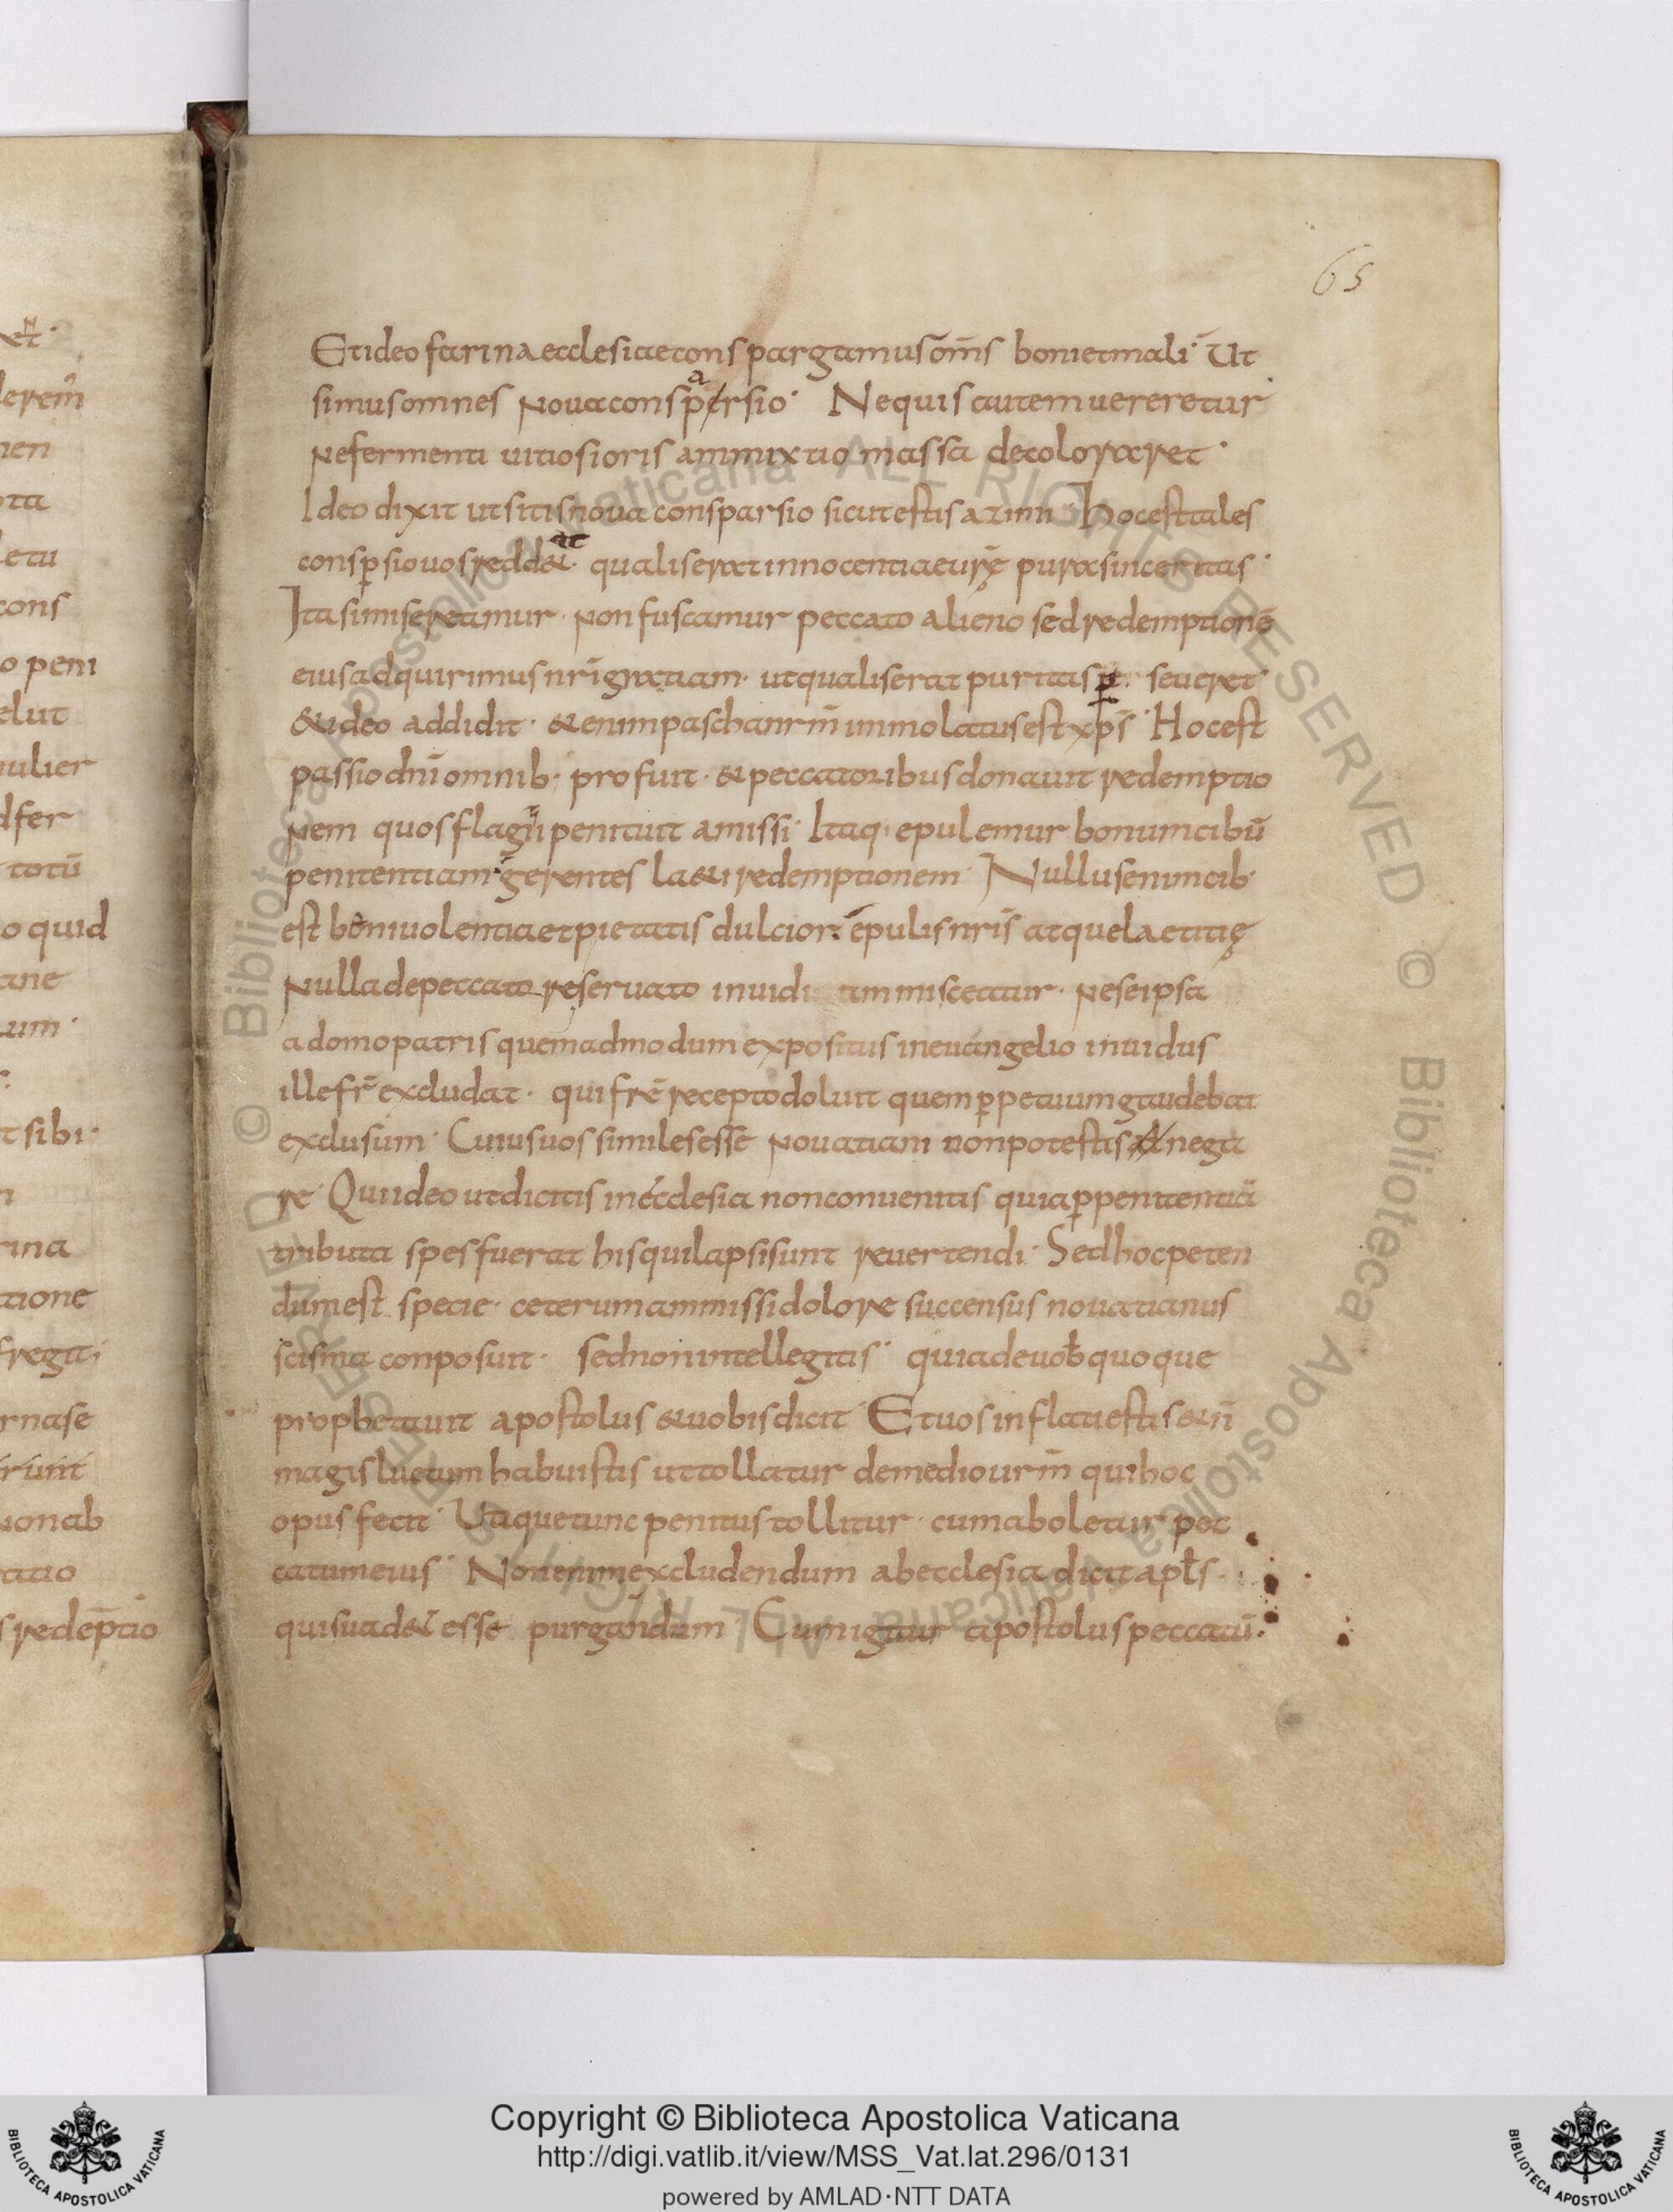 65
Et ideo farina ecclesiae conspargamus om̄s boni et mali· Ut
simus omnes noua conspersio· Ne quis autem uereretur
ne fermenti uitiosioris ammixtio massa decoloraret·
Ideo dixit ut sitis noua consparsio sicut estis azimi· hoc est tales
consp̱sio uos redd& qualis erat innocentiae urę̄ pura sinceritas·
Ita si misereamur· non fuscamur peccato alieno sed redemptionē
eius adquirimus nr̄i gratiam· ut qualis erat puritas seueret·
& ideo addidit· & enim pascha nrm̄ immolatus est xp̄s· Hoc est
passio dnī omnib· profuit· & peccatoribus donauit redemptio
nem quos flagitii penituit amissi· Itaq; epulemur bonum cibū
penitentiam gerentes la&i redemptionem· Nullus enim cib·
est beniuolentia et pietatis dulcior· epulis nr̄is atque laetitię
nulla de peccato reseruato inuidi ammisceatur· ne se ipsa
a domo patris quemadmodum expositus in euangelio inuidus
ille fr̄ excludat· qui frē recepto doluit quem p̱petuum gaudebat
exclusum· Cuius uos similes esse nouatiani non potestis nega
re· Qui ideo ut dicitis in ecclesia non conuenitis quia p̱ penitentiā
tributa spes fuerat his qui lapsi sunt reuertendi· Sed hoc peten
dum est specie· ceterum ammissi dolore succensus nouatianus
scisma conposuit· sed non intellegitis· quia de uob̄ quoque
prophetauit apostolus & uobis dicit· Et uos inflati estis & n̄
magis luctum habuistis ut tollatur de medio urm̄ qui hoc
opus fecit· Utique tunc penitus tollitur· cum aboletur pec
catum eius· Non enim excludendum ab ecclesia dicit apl̄s·
qui suad& esse purgandum· Cum igitur apostolus peccatū·
ulier
dfer
totū
o quid
t sibi·
tione
rnase
tatio
s redēptio
© Biblioteca Apostolica Vaticana ALL RIGHTS RESERVED
Copyright © Biblioteca Apostolica Vaticana
http://digi.vatlib.it/view/MSS_Vat.lat.296/0131
powered by AMLAD·NTT DATA
BIBLIOTECA APOSTOLICA VATICANA
BIBLIOTECA APOSTOLICA VATICANA